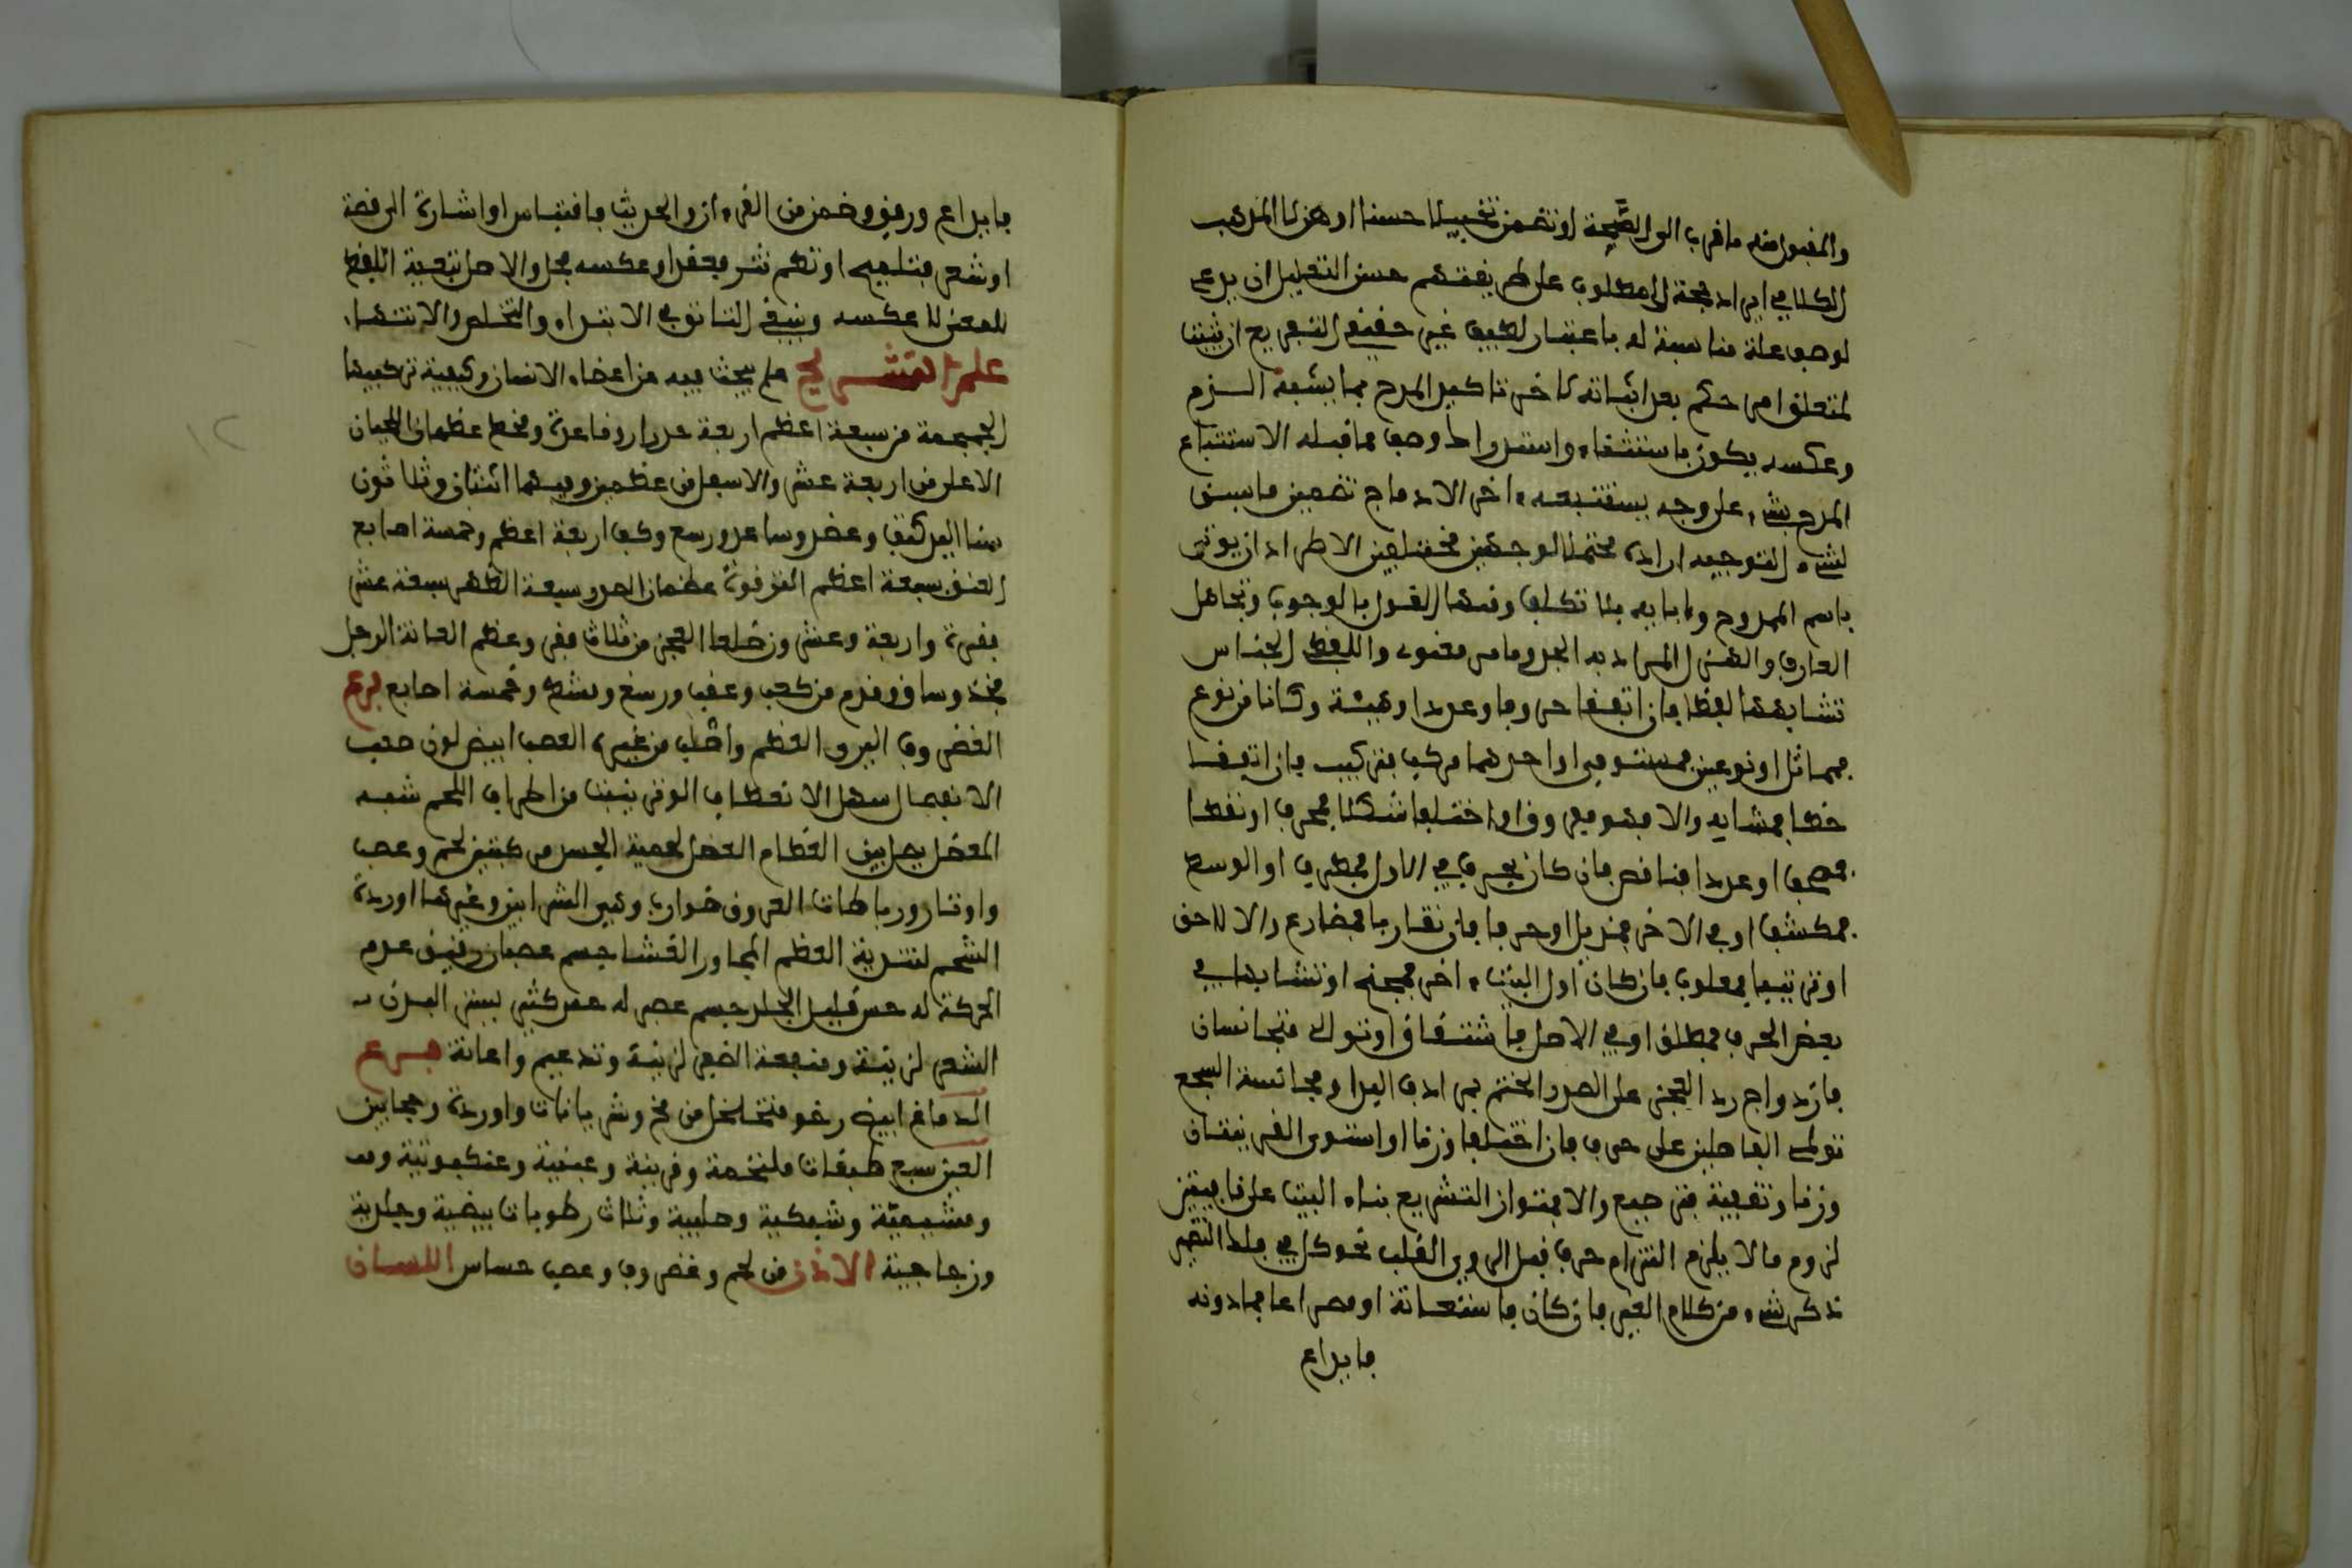 والمقبول منه ما قرب الى الصحة او تضمن تخييلا حسنا او هزلا المذهب
الكلامي ايراد حجة للمطلوب على طريقتهم حسن التعليل ان يدعى
لوصف علة مناسبة له باعتبار لطيف غير حقيقي التفريع ان يثبت
لمتعلق امر حكم بعد اثباته لاخر تاكيد المدح بما يشبه الذم
وعكسه يكون باستثناء واستدراك وصف مما قبله الاستتباع
المدح بشيء على وجه يستتبعه باخر الادماج تضمين ما سيق
لشيء اخر التوجيه ايراده محتملا لوجهين مختلفين الاطراد ان يوتى
باسم الممدوح وابايه بلا تكلف ومنها القول بالموجب وتجاهل
العارف والهزل المراد به الجد وما مر معنوي واللفظي الجناس
تشابههما لفظا فان اتفقا حروفا وعددا وهيئة وكانا من نوع
فمماثل او نوعين فمستوفى او احدهما مركب فتركيب فان اتفقا
خطا فمتشابه والا فمفروق او اختلفا شكلا فمحرف او نقطا
فمصحف او عددا فناقص فان كان بحرف في الاول فمطرف او الوسط
فمكتنف او في الاخر فمذيل او حرفا فان تقاربا فمضارع والا لاحق
او ترتيبا فمقلوب فان كان اول البيت واخره فمجنح او تشابها في
بعض الحرف فمطلق او في الاصل فاشتقاق او توالى متجانسان
فازدواج رد العجز على الصدر الختم بمرادف البدا ومجانسه السجع
تواطي الفاصلتين على حرف فان اختلفا وزنا او استوى القرينتان
وزنا وتقفية فترصيع والا فمتواز التشريع بناء البيت على قافيتين
لزوم ما لا يلزم التزام حرف قبل الروي القلب نحو كل في فلك التضمين
ذكر شيء من كلام الغير فان كان بيتا فاستعانة او مصراعا فما دونه
فايداع
فايداع ورفو ومن القرءان والحديث فاقتباس او اشارة الى قصة
او شعر فتلميح او نظم نثر فعقد او عكسه فحل والاصل تبعية اللفظ
للمعنى لا عكسه وينبغي التانق في الابتداء والتخلص والانتهاء
علم التشريح علم يبحث فيه عن اعضاء الانسان وكيفية تركيبها
الجمجمة من سبعة اعظم اربعة جدار وقاعدة وقحف عظمان اللحيان
الاعلى من اربعة عشر والاسفل من عظمين وفيهما اثنتان وثلاثون
سنا اليد كتف وعضد وساعد ورسغ وكف اربعة اعظم وخمسة اصابع
العنق سبعة اعظم الترقوة عظمان الصدر سبعة الظهر سبعة عشر
فقرة واربعة وعشرون ضلعا العجز من ثلاث فقر وعظم العانة الرجل
فخذ وساق وقدم من كعب وعقب ورسغ ومشط وخمسة اصابع فرع
الغضروف الين من العظم واصلب من غيره العصب ابيض لدن صعب
الانفصال سهل الانعطاف الوتر ينبت من اطراف اللحم شبه
العصب يصل بين العظام العضل لحمية الجسد مركبة من لحم وعصب
واوتار ورباطات العروق ضوارب وهي الشرايين وغيرها اوردة
الشحم لتندية العظم المجاور الغشا جسم عصباني رقيق عديم
الحركة له حس قليل الجلد جسم عصبي له حس كثير يستر البدن
الشعر لزينة ومنفعة الظفر لزينة وتدعيم واعانة فرع
الدماغ ابيض رخو متخلخل من مخ وشريانات واوردة وحجابين
العين سبع طبقات ملتحمة وقرنية وعنبية وعنكبوتية
ومشيمية وشبكية وصلبية وثلاث رطوبات بيضية وجلدية
وزجاجية الاذن من لحم وغضروف وعصب حساس اللسان